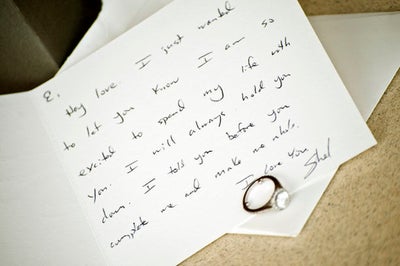 E.
Hey love I just wanted
to let you know I am so
excited to spend my life with
you. I will always hold you
down. I told you before you
complete me and make me whole.
I love you
Shel